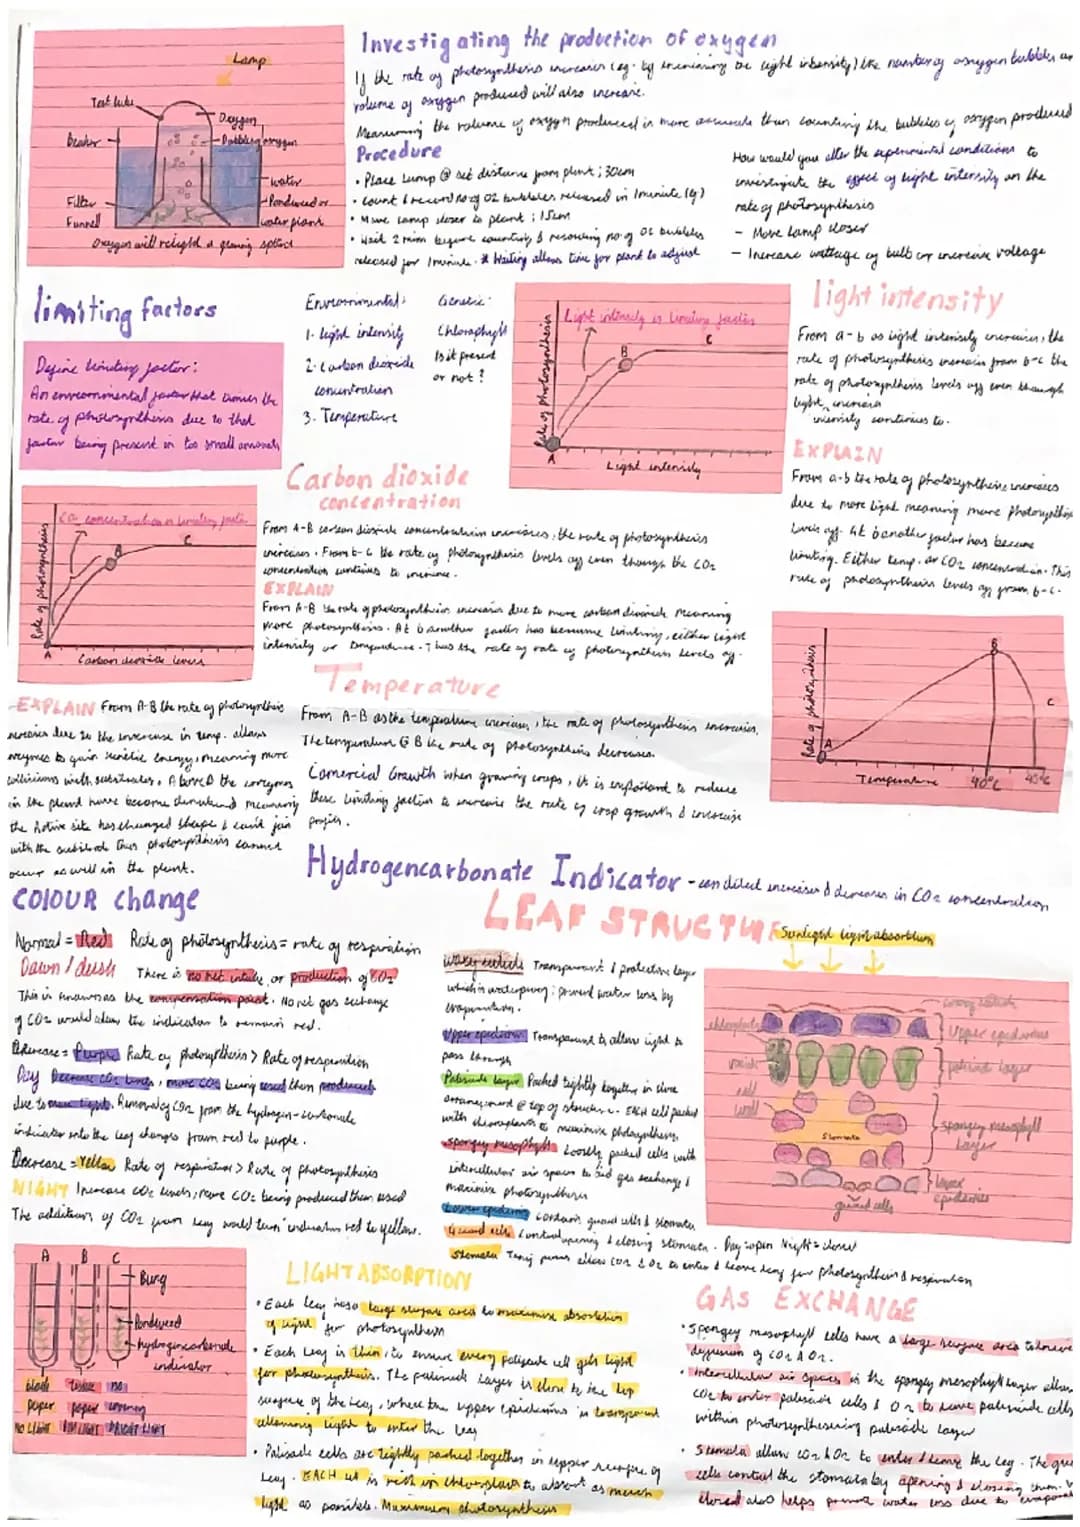 Investigating the production of oxygen
If the rate of photosynthesis increases (eg. by increasing the light intensity) the number of oxygen bubbles an
volume of oxygen produced will also increase.
Measuring the volume of oxygen produced is more accurate than counting the bubbles of oxygen produced
Lamp
Test tube
Oxygen
Beaker
Bubbles of oxygen
water
Filter
Funnell
Pondweed or
water plant
Oxygen will relight a glowing splint
Procedure
• Place Lamp @ set distance from plant ; 30cm
• count & record no of O2 bubbles released in 1 minute
• Move lamp closer to plant ; 15cm
• Wait 2 min before counting & recording no of O2 bubbles
released for 1 minute. * Waiting allows time for plant to adjust
How would you alter the experimental conditions to
investigate the effect of light intensity on the
rate of photosynthesis
- Move lamp closer
- Increase wattage of bulb or increase voltage
limiting factors
Define limiting factor:
An environmental factor that limits the
rate of photosynthesis due to that
factor being present in too small amounts
Environmental:
1. light intensity
2. Carbon dioxide
concentration
3. Temperature
Genetic:
Chlorophyll
Is it present
or not?
Light intensity is limiting factor
Rate of photosynthesis
A
B
C
Light intensity
light intensity
From a-b as light intensity increases, the
rate of photosynthesis increases from b-c the
rate of photosynthesis levels off even though
light
intensity continues to.
EXPLAIN
From a-b the rate of photosynthesis increases
due to more light meaning more photosynthesis
Levels off. At b another factor has become
limiting. Either temp. or CO2 concentration. This
rate of photosynthesis levels off from b-c.
Carbon dioxide
concentration
From A-B carbon dioxide concentration increases, the rate of photosynthesis
increases. From b-c the rate of photosynthesis levels off even though the CO2
concentration continues to increase.
EXPLAIN
From A-B the rate of photosynthesis increases due to more carbon dioxide meaning
more photosynthesis. At b another factor has become limiting, either light
intensity or temperature. Thus the rate of rate of photosynthesis levels off.
CO2 concentration is limiting factor
Rate of photosynthesis
A
B
C
Carbon dioxide levels
Temperature
From A-B as the temperature increases, the rate of photosynthesis increases.
The temperature @ B the rate of photosynthesis decreases.
Comercial Growth when growing crops, it is important to reduce
these limiting factors to increase the rate of crop growth & increase
profits.
Rate of photosynthesis
A
B
C
Temperature
40°C
45°C
EXPLAIN From A-B the rate of photosynthesis
increases due to the increase in temp. allows
enzymes to gain kinetic energy, meaning more
collisions with substrates. Above B the enzymes
in the plant have become denatured meaning
the Active site has changed shape & can't join
with the substrate thus photosynthesis cannot
occur as well in the plant.
Hydrogencarbonate Indicator - can detect increases & decreases in CO2 concentration
COLOUR change
Normal = Red Rate of photosynthesis = rate of respiration
Dawn / dusk There is no net intake or production of CO2
This is known as the compensation point. No net gas exchange
of CO2 would allow the indicator to remain red.
Decrease = Purple Rate of photosynthesis > Rate of respiration
Day Decrease CO2 levels, more CO2 being used then produced
due to more light. Removal of CO2 from the hydrogen-carbonate
indicator into the leaf changes from red to purple.
Decrease = Yellow Rate of respiration > Rate of photosynthesis
NIGHT Increase CO2 levels, more CO2 being produced then used
The addition of CO2 from leaf would turn indicator red to yellow.
A B C
Bung
Pondweed
hydrogencarbonate
indicator
black tissue no
paper paper covering
NO LIGHT DIM LIGHT BRIGHT LIGHT
LEAF STRUCTURE
Sunlight light absorbtion
waxy cuticle Transparent & protective layer
which is waterproof; prevent water loss by
evaporation.
Upper epidermis Transparent to allow light to
pass through
Palisade layer Packed tightly together in close
arrangement @ top of structure. EACH cell packed
with chloroplasts to maximise photosynthesis.
spongy mesophyll Loosly packed cells with
intercellular air spaces to aid gas exchange &
maximise photosynthesis
Lower epidermis Contains guard cells & stomata
Guard cells Control opening & closing stomata. Day = open Night = closed
Stomata Tiny pores allow CO2 & O2 to enter & leave leaf for photosynthesis & respiration
waxy cuticle
chloroplast
Upper epidermis
palisade layer
cell
wall
Stomata
spongey mesophyll
layer
lower
epidermis
guard cells
LIGHT ABSORPTION
• Each leaf has a large surface area to maximise absorbtion
of light for photosynthesis
• Each leaf is thin, to ensure every palisade cell gets light
for photosynthesis. The palisade layer is close to the top
surface of the leaf, where the upper epidermis is transparent
allowing light to enter the leaf
• Palisade cells are tightly packed together in upper surface of
leaf. EACH cell is rich in chloroplasts to absorb as much
light as possible. Maximum photosynthesis
GAS EXCHANGE
• Spongey mesophyll cells have a large surface area to
diffusion of CO2 & O2.
• intercellular air spaces in the spongey mesophyll layer allow
CO2 to enter palisade cells & O2 to leave palisade cells
within photosynthesising palisade layer
• Stomata allow CO2 & O2 to enter & leave the leaf. The
cells control the stomata by opening & closing them.
closed also helps prevent water loss due to